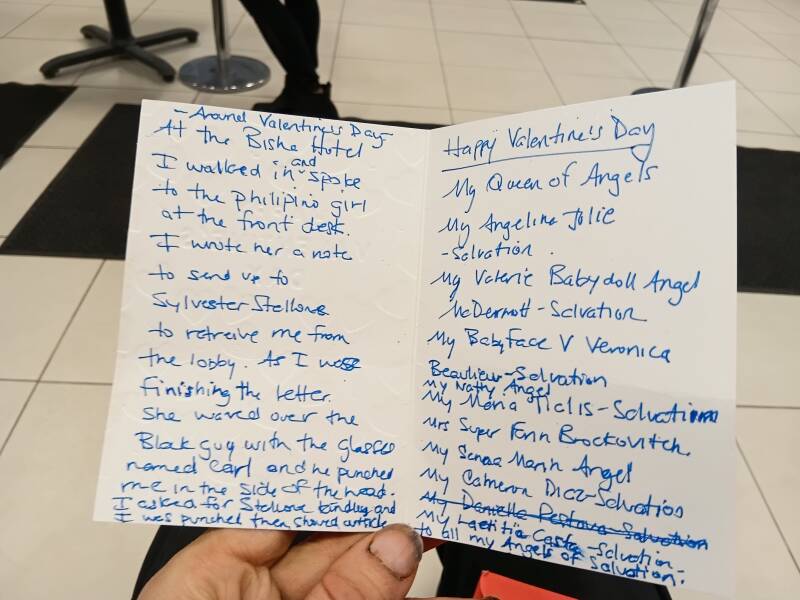 - Around Valentine's Day -
At the Bisha Hotel
I walked in and spoke
to the philipino girl
at the front desk.
I wrote her a note
to send up to
Sylvester Stellone
to retreive me from
the lobby. As I was
finishing the letter.
She waved over the
Blak guy with the glasses
named Carl and he punched
me in the side of the head.
I asked for Stellone kindley and
I was punched then showed article
Happy Valentine's Day
My Queen of Angels
My Angelina Jolie
- Salvation.
My Valerie Babydoll Angel
McDermott - Salvation
My Babyface V Veronica
Beaulieu - Salvation
My Nathy Angel
My Mona - Salvation
Mrs Super Fenn Brockovitch.
My Senaa Marin Angel
My Cameron Diaz - Salvation
My Daniella Pestova Salvation
My Laetitia Casta - Salvation -
to all my Angels of Salvation.